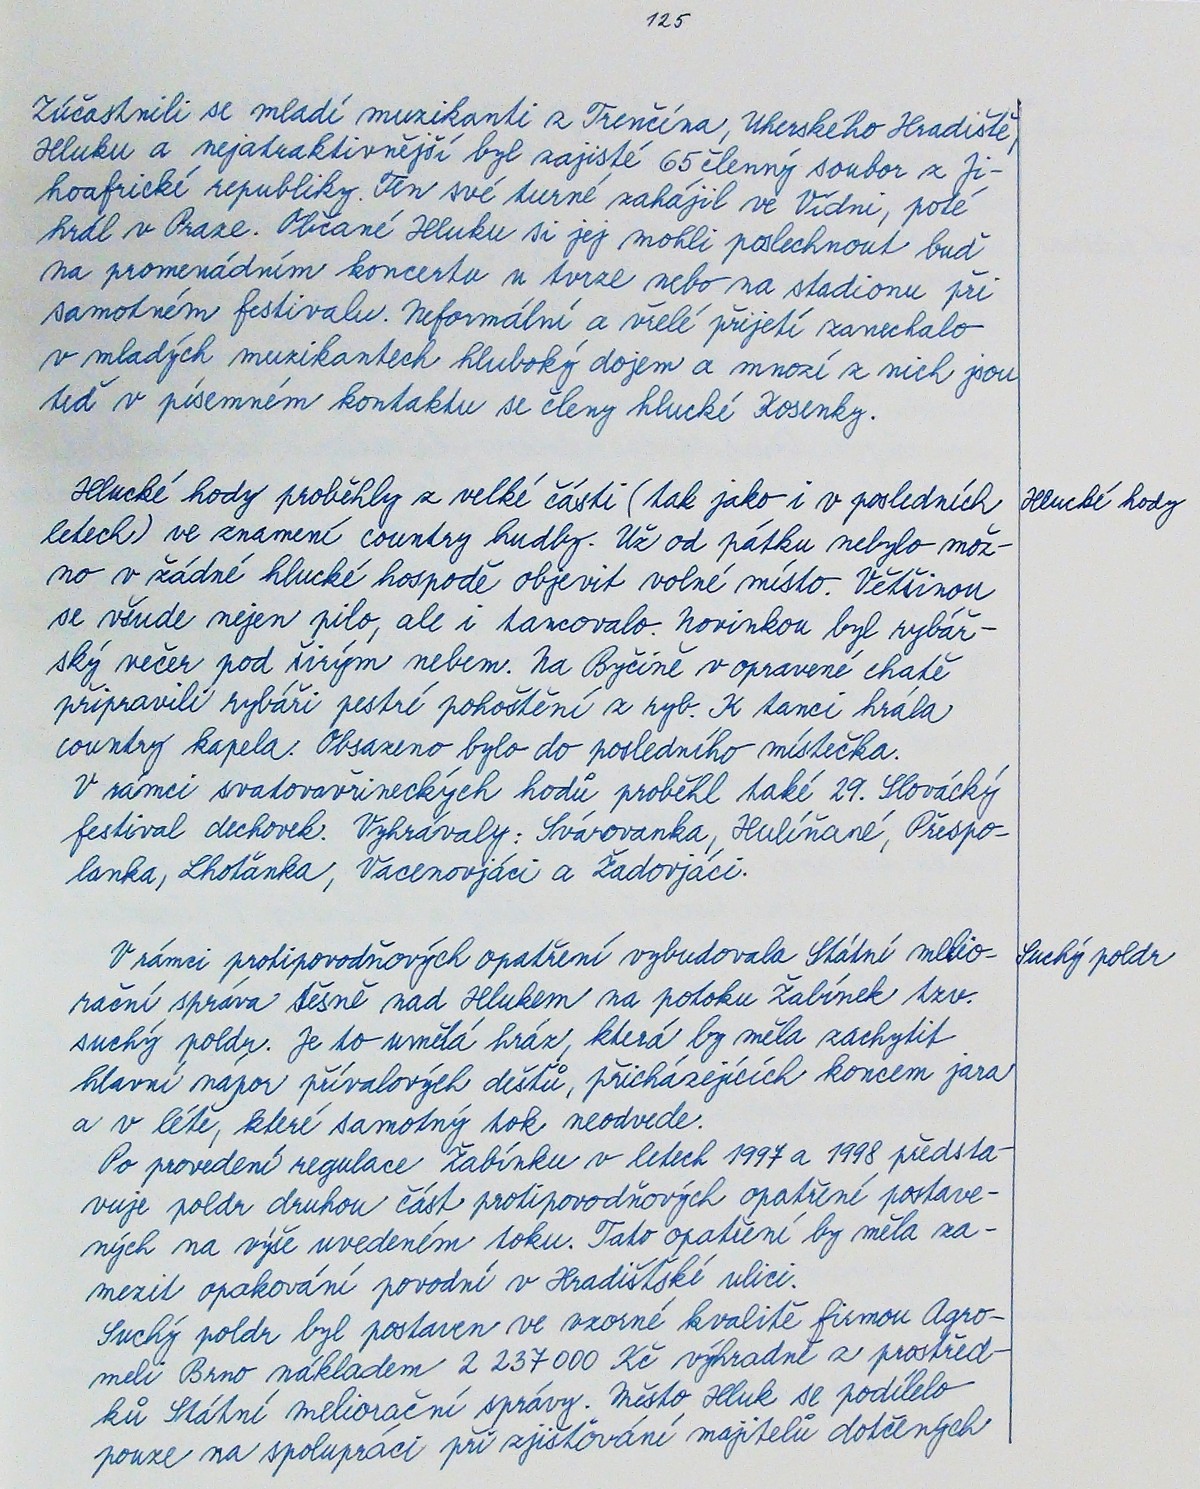 125
Zúčastnili se mladí muzikanti z Trenčína, Uherského Hradiště,
Hluku a nejatraktivnější byl zajisté 65členný soubor z Ji-
hoafrické republiky. Ten své turné zahájil ve Vídni, poté
hrál v Praze. Občané Hluku si jej mohli poslechnout buď
na promenádním koncertu u tvrze nebo na stadionu při
samotném festivalu. Neformální a vřelé přijetí zanechalo
v mladých muzikantech hluboký dojem a mnozí z nich jsou
teď v písemném kontaktu se členy hlucké Kosenky.
Hlucké hody proběhly z velké části (tak jako i v posledních
Hlucké hody
letech) ve znamení country hudby. Už od pátku nebylo mož-
no v žádné hlucké hospodě objevit volné místo. Většinou
se všude nejen pilo, ale i tancovalo. Novinkou byl rybář-
ský večer pod širým nebem. Na Byčině v opravené chatě
připravili rybáři pestré pohoštění z ryb. K tanci hrála
country kapela. Obsazeno bylo do posledního místečka.
V rámci svatovavřineckých hodů proběhl také 29. Slovácký
festival dechovek. Vyhrávaly: Svárovanka, Hulíňané, Přespo-
lanka, Lhoťanka, Vacenovjáci a Žadovjáci.
V rámci protipovodňových opatření vybudovala Státní melio-
Suchý poldr
rační správa těsně nad Hlukem na potoku Žabínek tzv.
suchý poldr. Je to umělá hráz, která by měla zachytit
hlavní nápor přívalových dešťů, přicházejících koncem jara
a v létě, které samotný tok neodvede.
Po provedení regulace Žabínku v letech 1997 a 1998 předsta-
vuje poldr druhou část protipovodňových opatření postave-
ných na výše uvedeném toku. Tato opatření by měla za-
mezit opakování povodní v Hradišťské ulici.
Suchý poldr byl postaven ve vzorné kvalitě firmou Agro-
meli Brno nákladem 2 237 000 Kč výhradně z prostřed-
ků Státní meliorační správy. Město Hluk se podílelo
pouze na spolupráci při zjišťování majitelů dotčených